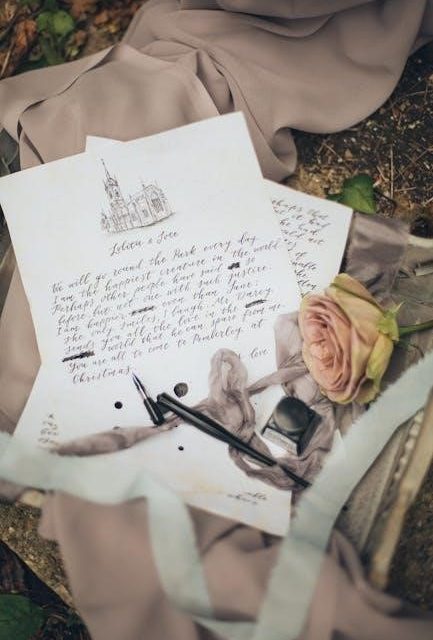 Lolita & Jose
We will go round the Park every day
I am the happiest creature in the world
Perhaps other people have said so
before but not one with such justice
I am happier even than Jane;
she only smiles, I laugh. Mr. Darcy
sends You all the love in the
world that he can spare from me.
You are all to come to Pemberley at
Christmas
love